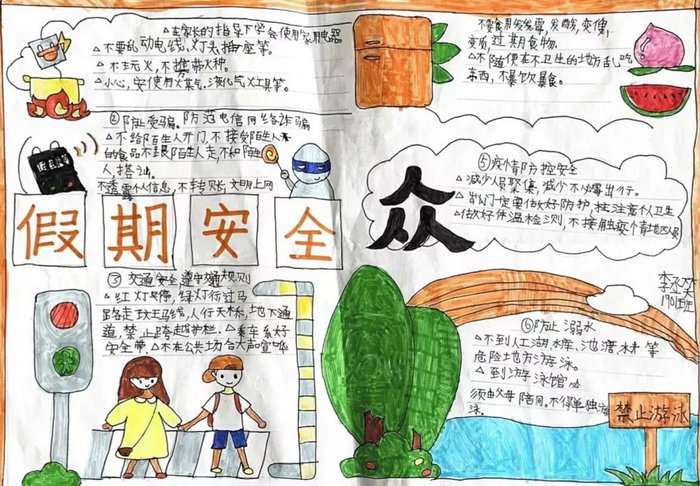 在家长的指导下学会使用家用电器
△不要乱动电线,灯头插座等。
△不玩火,不携带火种。
△小心,安使用火煤气、液化气灶具等。
不要食用发霉,发酸,变馊,
变质,过期食物。
△不随便在不卫生的地方乱吃
东西,不暴饮暴食。
②防止受骗。防范电信网络诈骗
△不给陌生人开门,不接受陌生人
的食品不跟陌生人走,不和陌生
人搭讪。
不透露个人信息,不转账,文明上网
假期安全
③交通安全遵守交通规则
△红灯停,绿灯行过马
路走斑马线,人行天桥,地下通
道,禁止跨越护栏。△乘车系好
安全带。△不在公共场合大声喧哗
众
⑤疫情防控安全
△减少人员聚集,减少不必要出行。
△出门一定要做好防护,注意个人卫生
△做好体温检测,不接触
⑥防止溺水
△不到江湖水库、池塘、等
危险地方游泳。
△到游泳馆必
须由父母陪同,不得单独游
泳。
禁止游泳